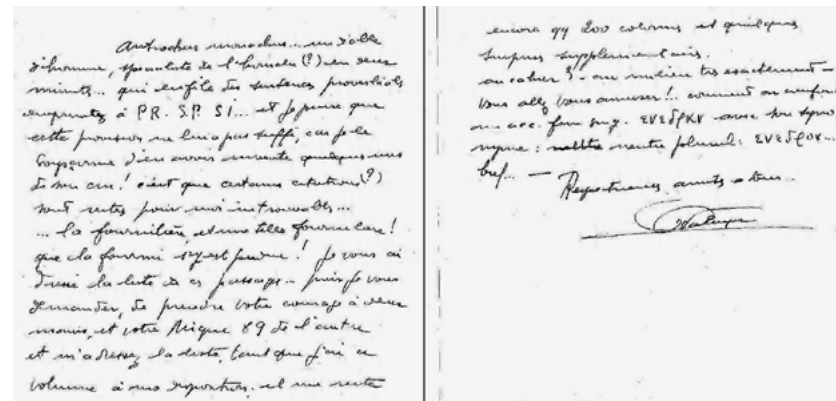 Antiochus monachus... un drôle
d'homme, spécialiste de l'homélie (?) en deux
minutes... qui enfile des sentences proverbiales
empruntées à PR. SP. SI... et je pense que
cette provision ne lui a pas suffi, car je le
soupçonne d'en avoir inventé quelques unes
de son cru! c'est que certaines citations (?)
sont restées pour moi introuvables...
... la fourmilière, et une telle fourmilière!
que la fourmi s'y est perdue! Je vous ai
dressé la liste de ces passages... puis-je vous
demander, de prendre votre courage à deux
mains, et votre Migne 89 de l'autre
et m'adresser la liste, tant que j'ai ce
volume à ma disposition. il me reste
encore qq 200 colonnes et quelques
supplémentaires.
au cahier 3 - au milieu très exactement -
vous allez vous amuser!.. comment on confond
un acc. fem sing. ενεδραν avec son syno
nyme: neutre pluriel: ενεδρον...
bref... —
Respectueuses amitiés à tous..